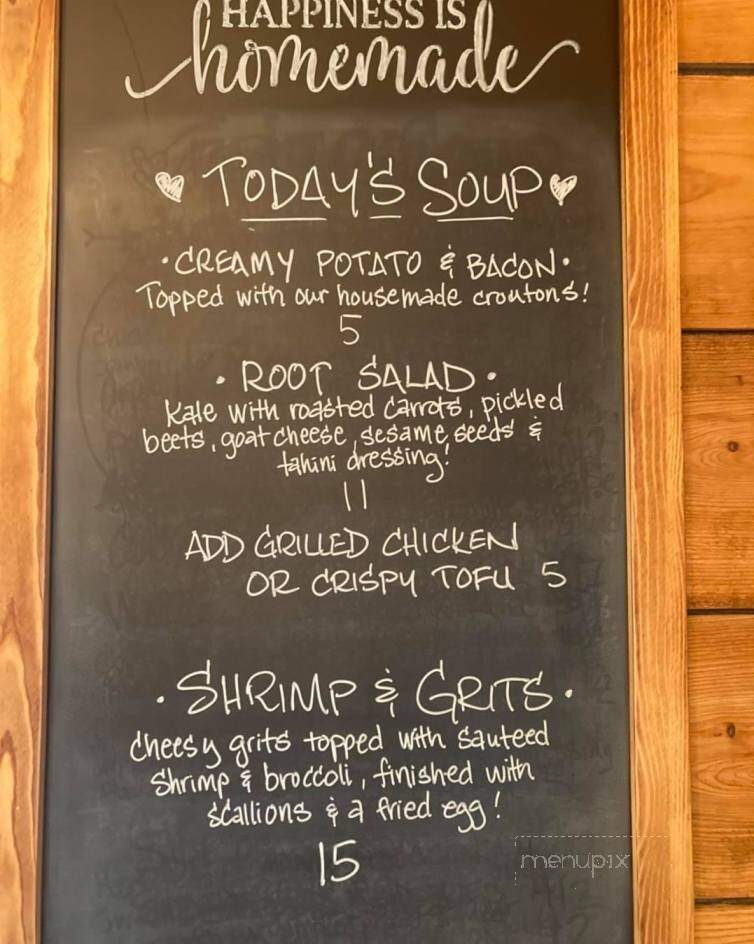 HAPPINESS IS
homemade
TODAY'S SOUP
· CREAMY POTATO & BACON ·
Topped with our housemade croutons!
5
· ROOT SALAD ·
Kale with roasted carrots, pickled
beets, goat cheese, sesame seeds &
tahini dressing!
11
ADD GRILLED CHICKEN
OR CRISPY TOFU 5
· SHRIMP & GRITS ·
Cheesy grits topped with sauteed
Shrimp & broccoli, finished with
scallions & a fried egg!
15
menupix